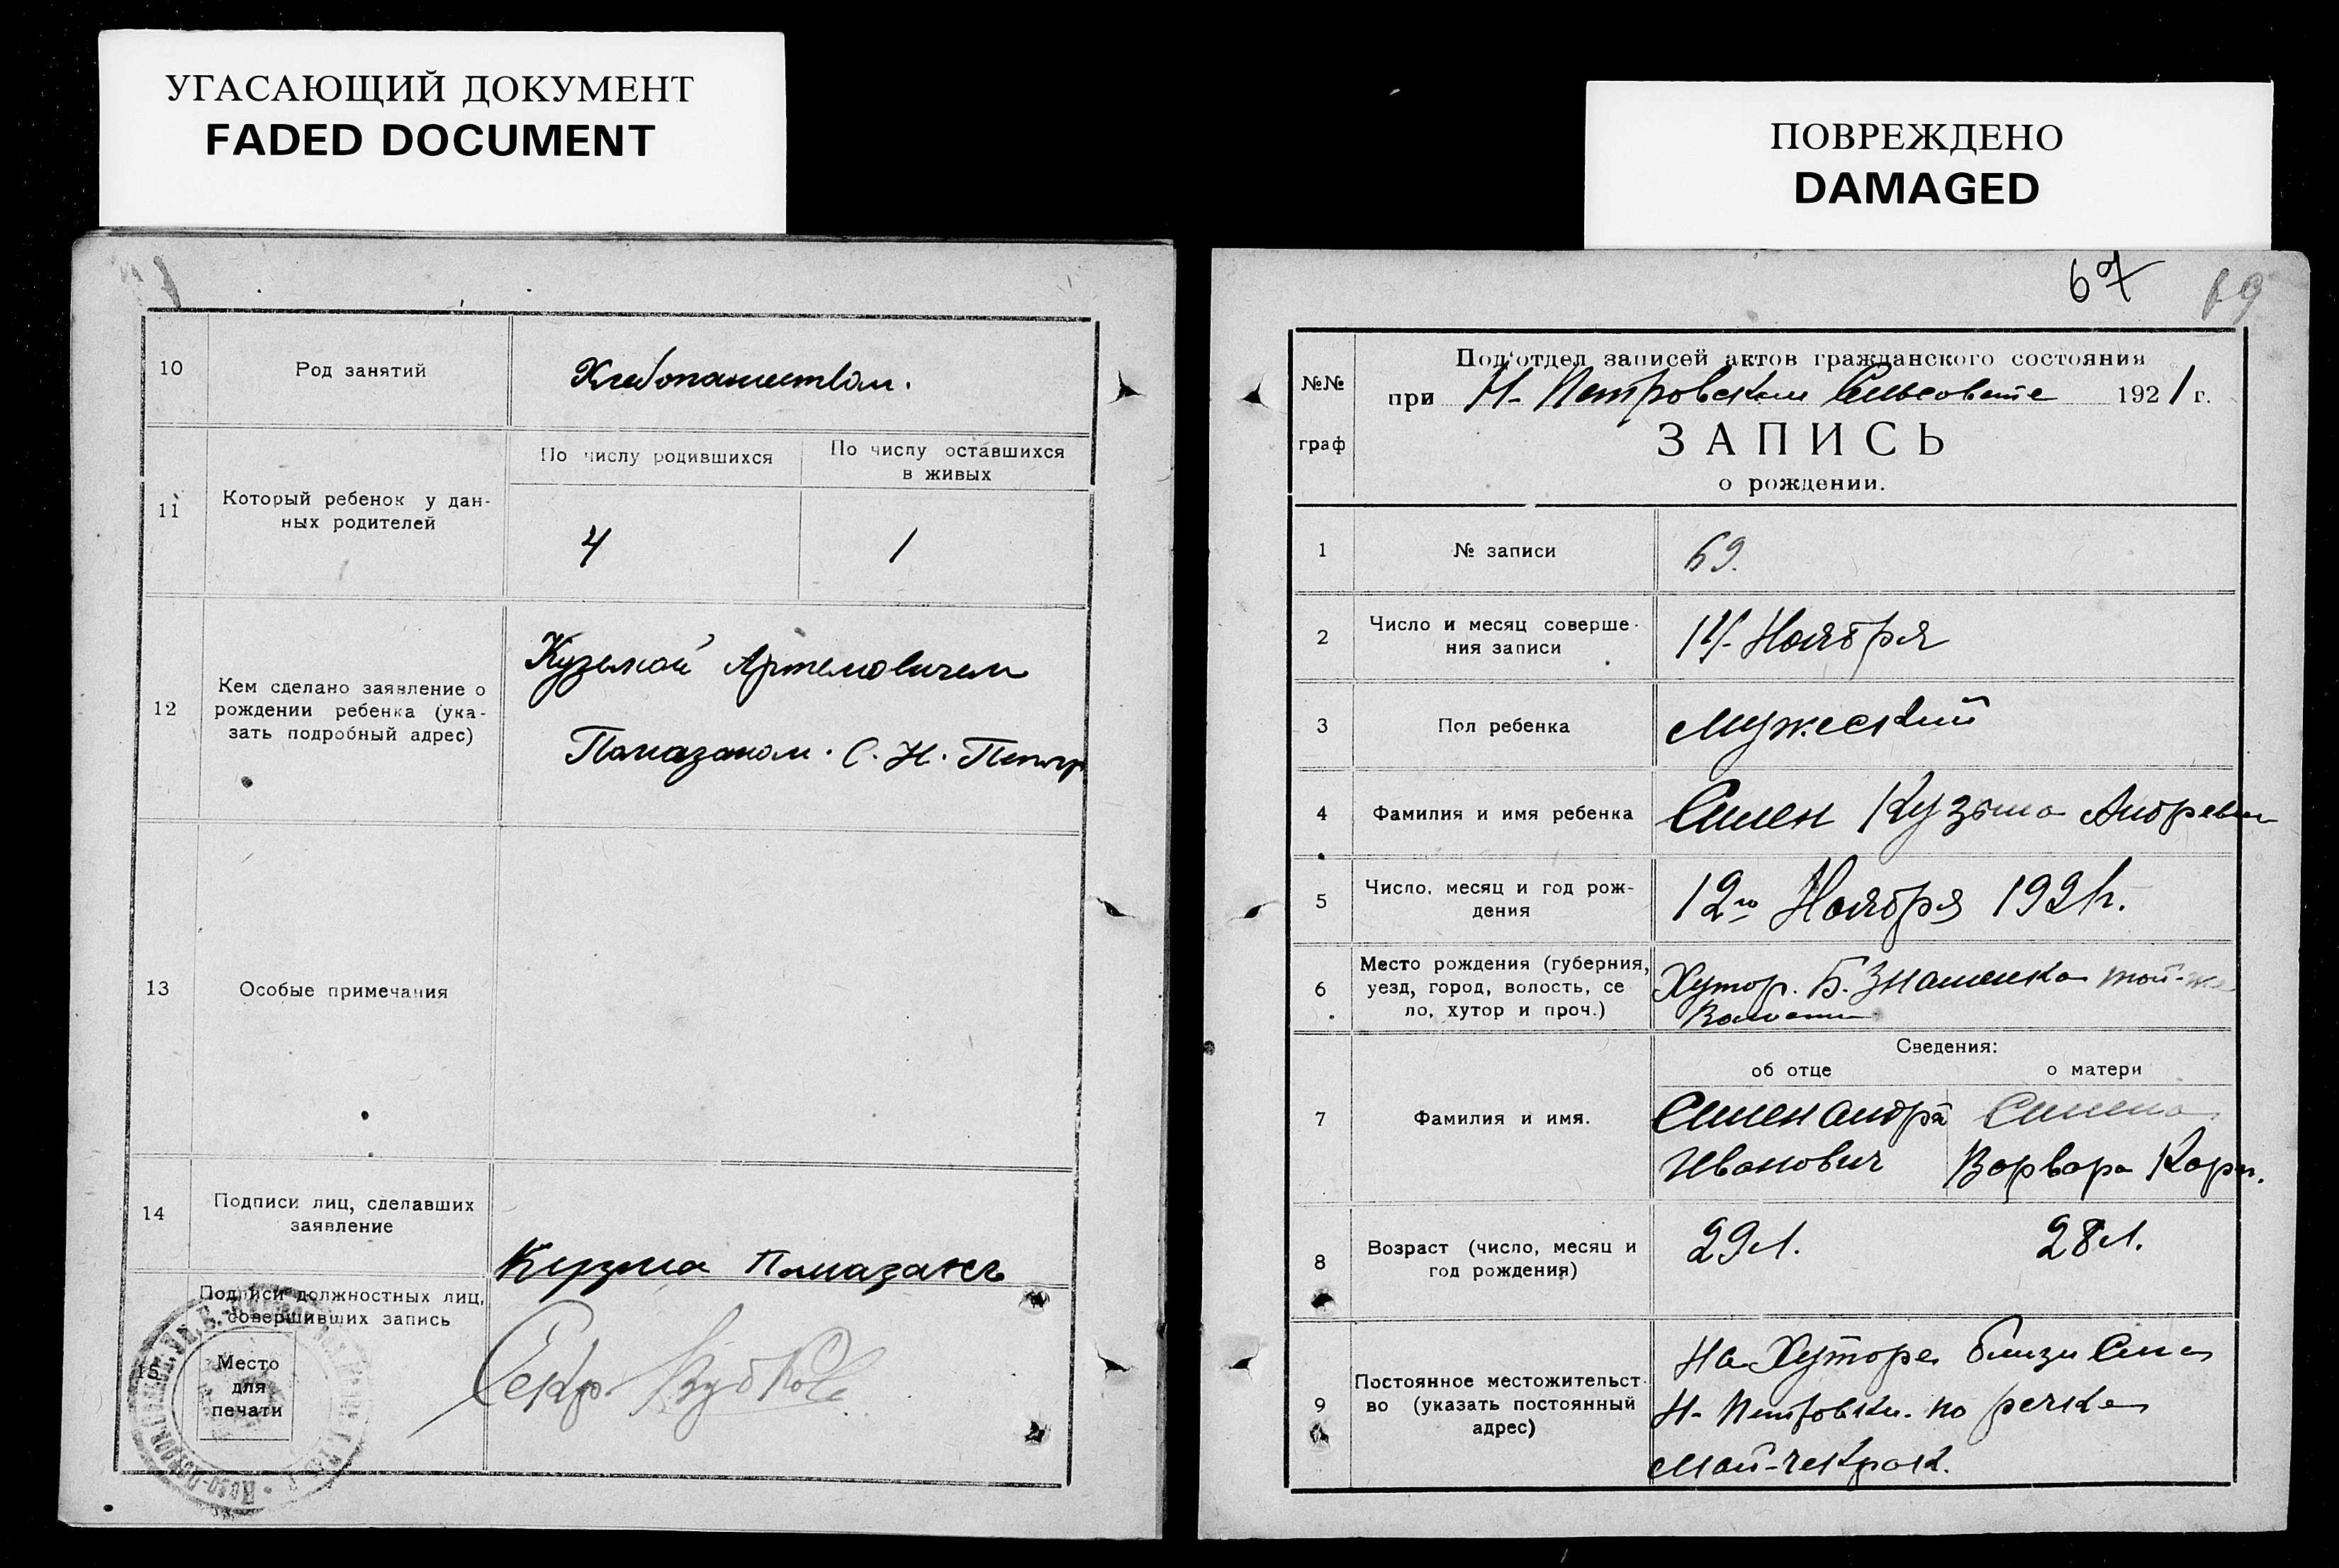 УГАСАЮЩИЙ ДОКУМЕНТ
FADED DOCUMENT
10
Род занятий
Хлебопашеством.
11
Который ребенок у дан-
ных родителей
По числу родившихся
По числу оставшихся
в живых
4
1
12
Кем сделано заявление о
рождении ребенка (ука-
зать подробный адрес)
Кузьмой Артемовичем
Помазаном. С. Н. Петр
13
Особые примечания
14
Подписи лиц, сделавших
заявление
Кузма Помазанъ
15
Подписи должностных лиц,
совершивших запись
Место
для
печати
Секр.
ПОВРЕЖДЕНО
DAMAGED
67
69
№№
граф
Под'отдел записей актов гражданского состояния
при Н-Петровском Сельсовете 1921 г.
ЗАПИСЬ
о рождении.
1
№ записи
69.
2
Число и месяц соверше-
ния записи
14 Ноября
3
Пол ребенка
Мужеский
4
Фамилия и имя ребенка
Симен Кузьма Андреевич
5
Число, месяц и год рож-
дения
12го Ноября 1921г.
6
Место рождения (губерния,
уезд, город, волость, се
ло, хутор и проч.)
Хутор. Б. Знаменка той-же
Волости
Сведения:
об отце
о матери
7
Фамилия и имя.
Симен Андрей
Иванович
Симена
Варвара Корн.
8
Возраст (число, месяц и
год рождения)
29 л.
28 л.
9
Постоянное местожительст-
во (указать постоянный
адрес)
На Хуторе близи Села
Н-Петровки. по речке
Май-чекрак.